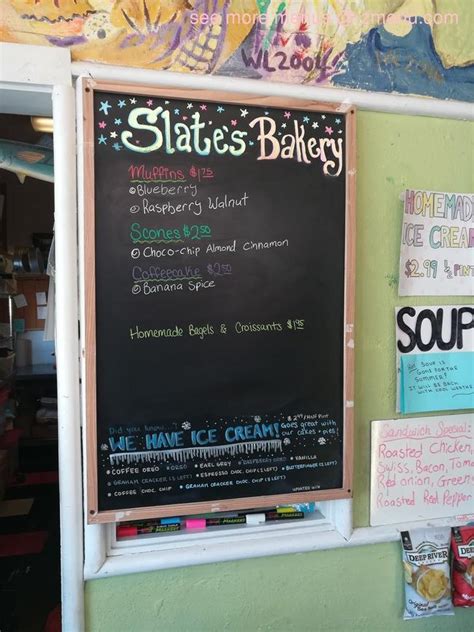 see more menus
menu.com
WL2004
Slate's Bakery
Muffins $1.75
Blueberry
Raspberry Walnut
Scones $2.50
Choco-chip Almond Cinnamon
Coffeecake $2.50
Banana Spice
Homemade Bagels & Croissants
Did you know...
$2.99/Half Pint
WE HAVE ICE CREAM!
Goes great with
our cakes + pies!
COFFEE OREO OREO EARL GREY RASPBERRY OREO VANILLA
GRAHAM CRACKER (1 LEFT) ESPRESSO CHIP (1 LEFT) BUTTERFINGER (1 LEFT)
COFFEE CHOC. CHIP GRAHAM CRACKER CHOC. CHIP (1 LEFT)
HOMEMADE
ICE CREAM
$2.99 1/2 PINT
SOUP
SOUP IS
GONE FOR THE
SUMMER!
IT WILL BE BACK
WITH COOL WEATHER
Sandwich Special:
Roasted Chicken,
Swiss, Bacon, Tom
Red onion, Greens
Roasted Red Pepper
DEEP RIVER
Original
DEEP
RIVER